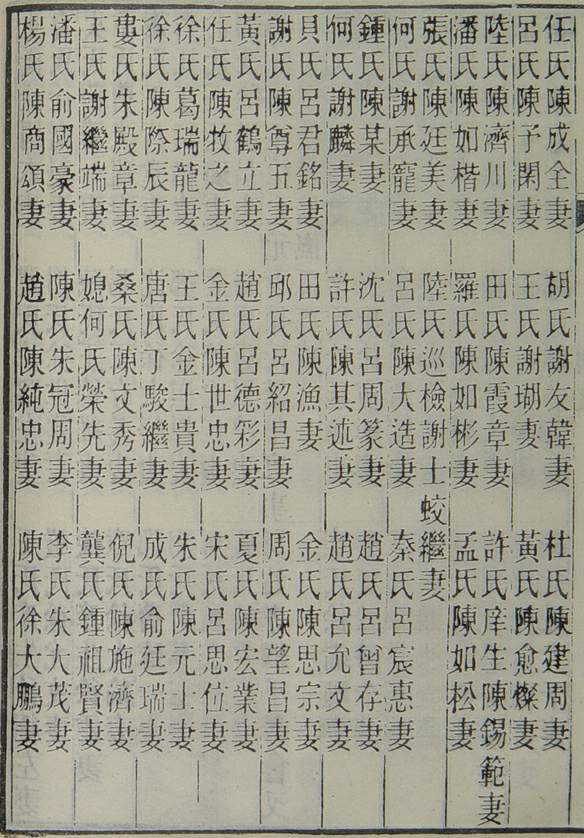 任氏陳成全妻 胡氏謝友韓妻 杜氏陳建周妻
呂氏陳予閑妻 王氏謝瑚妻 黃氏陳愈燦妻
陸氏陳濟川妻 田氏陳霞章妻 許氏庠生陳錫範妻
潘氏陳如楷妻 羅氏陳如彬妻 孟氏陳如松妻
張氏陳廷美妻 陸氏巡檢謝士蛟繼妻
何氏謝承寵妻 呂氏陳大造妻 秦氏呂宸惠妻
鍾氏陳某妻 沈氏呂周篆妻 趙氏呂曾存妻
何氏謝麟妻 許氏陳其述妻 趙氏呂允文妻
貝氏呂君銘妻 田氏陳漁妻 金氏陳思宗妻
謝氏陳尊五妻 邱氏呂紹昌妻 周氏陳望昌妻
黃氏呂鶴立妻 趙氏呂德彩妻 夏氏陳宏業妻
任氏陳牧之妻 金氏陳世忠妻 宋氏呂思位妻
徐氏葛瑞龍妻 王氏金士貴妻 朱氏陳元士妻
徐氏陳際辰妻 唐氏丁駿繼妻 成氏俞廷瑞妻
婁氏朱殿章妻 桑氏陳文秀妻 倪氏陳施濟妻
王氏謝繼端妻 媳何氏榮先妻 龔氏鍾祖賢妻
潘氏俞國豪妻 陳氏朱冠周妻 李氏朱大茂妻
楊氏陳商頌妻 趙氏陳純忠妻 陳氏徐大鵬妻